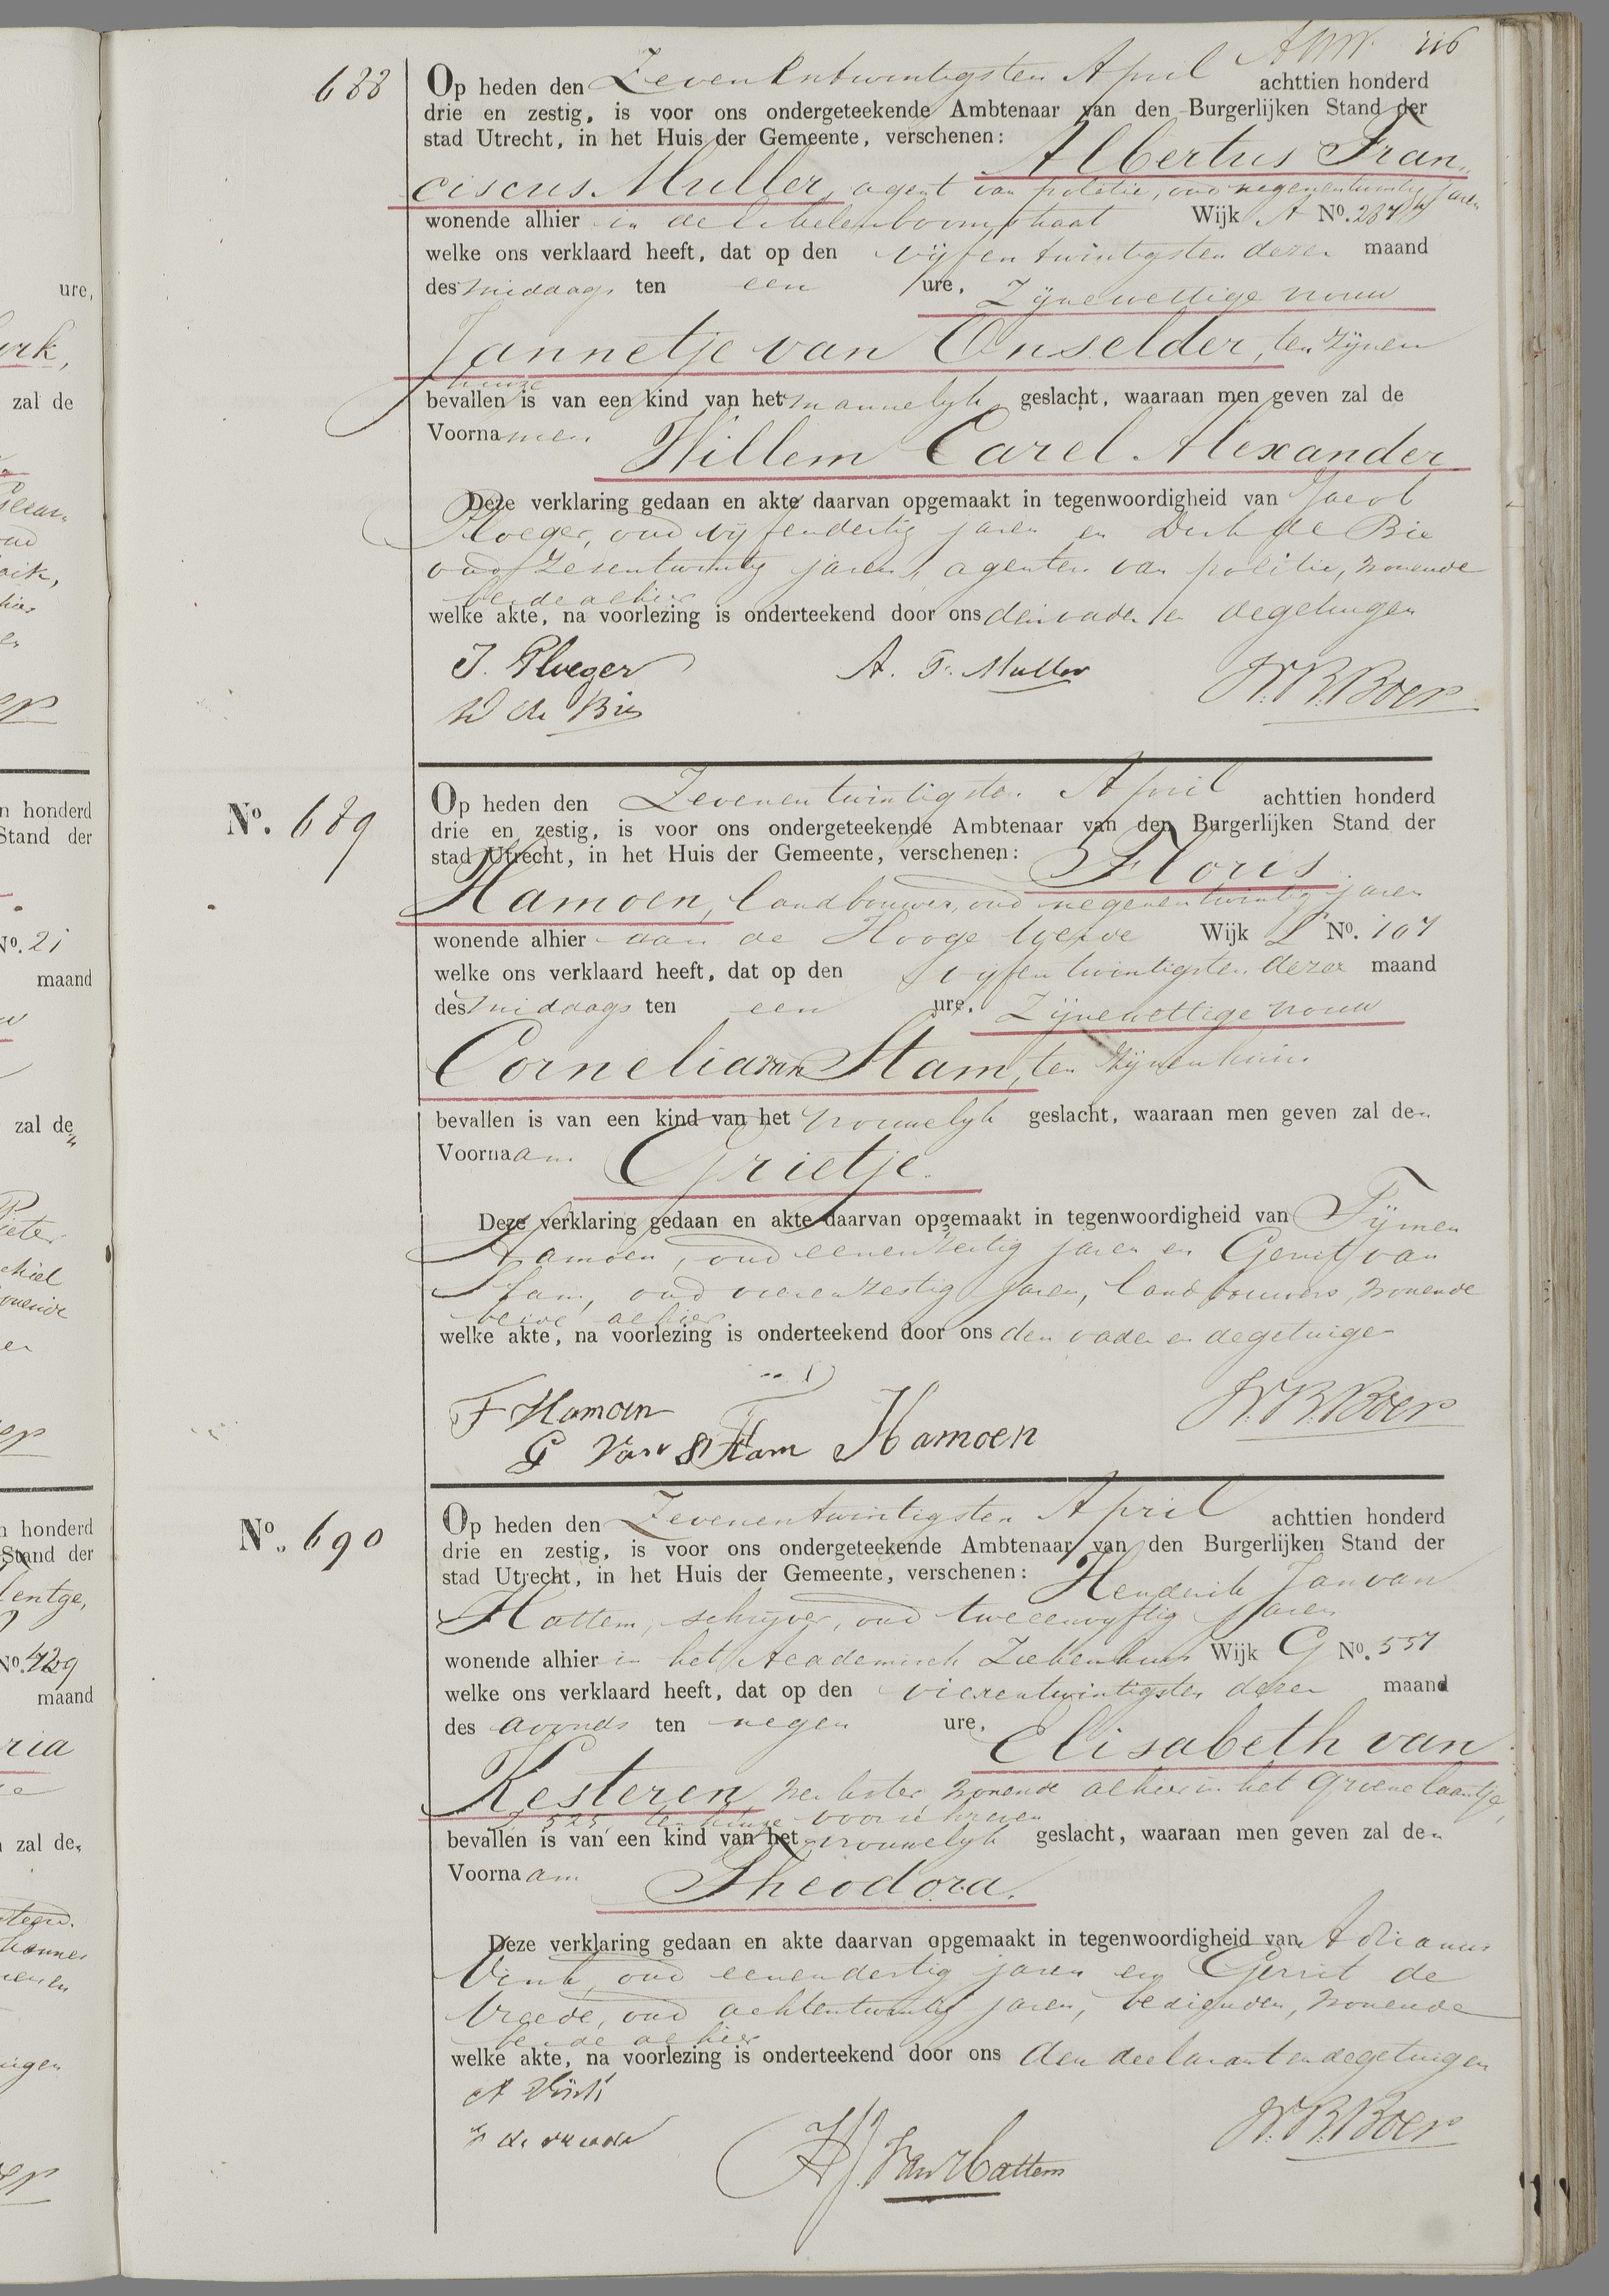 116
688
Op heden den Zevenentwintigsten April achttien honderd
drie en zestig, is voor ons ondergeteekende Ambtenaar van den Burgerlijken Stand der
stad Utrecht, in het Huis der Gemeente, verschenen: Albertus Fran-
ciscus Muller, agent van politie, oud negenentwintig jaren
wonende alhier in de Abelenboomstraat Wijk A No.
welke ons verklaard heeft, dat op den vijfentwintigsten dezer maand
des middags ten een ure, Zijne wettige vrouw
Jannetje van Onselder, ten zijnen
huize
bevallen is van een kind van het mannelijk geslacht, waaraan men geven zal de
Voornamen Willem Carel Alexander
Deze verklaring gedaan en akte daarvan opgemaakt in tegenwoordigheid van Jacob
Ploeger, oud vijfendertig jaren en Dirk de Bie
oud zesentwintig jaren, agenten van politie, wonende
beide alhier
welke akte, na voorlezing is onderteekend door ons den vader en de getuigen
J. Ploeger A. F. Muller W.B. Boer
D de Bie
No. 689
Op heden den Zevenentwintigsten April achttien honderd
drie en zestig, is voor ons ondergeteekende Ambtenaar van den Burgerlijken Stand der
stad Utrecht, in het Huis der Gemeente, verschenen: Floris
Hamoen, landbouwer, oud negenentwintig jaren
wonende alhier aan de Hooge Weide Wijk L No. 107
welke ons verklaard heeft, dat op den vijfentwintigsten dezer maand
des middags ten een ure, Zijne wettige vrouw
Cornelia van Stam, ten zijnen huize
bevallen is van een kind van het vrouwelijk geslacht, waaraan men geven zal de-
Voornaam Grietje.
Deze verklaring gedaan en akte daarvan opgemaakt in tegenwoordigheid van Tijmen
Hamoen, oud jaren en Gerrit van
Stam, oud vierenzestig jaren, landbouwers, wonende
beide alhier
welke akte, na voorlezing is onderteekend door ons den vader en de getuigen
F Hamoen W.B. Boer
G van Stam T Hamoen
No. 690
Op heden den Zevenentwintigsten April achttien honderd
drie en zestig, is voor ons ondergeteekende Ambtenaar van den Burgerlijken Stand der
stad Utrecht, in het Huis der Gemeente, verschenen: Hendrik Jan van
Hattem, schrijver, oud tweeenvijftig jaren
wonende alhier in het Academisch Ziekenhuis Wijk G No. 557
welke ons verklaard heeft, dat op den vierentwintigsten dezer maand
des avonds ten negen ure, Elisabeth van
Kesteren, werkster wonende alhier in het Groenelaantje,
525, ten huize voorschreven
bevallen is van een kind van het vrouwelijk geslacht, waaraan men geven zal de-
Voornaam Theodora.
Deze verklaring gedaan en akte daarvan opgemaakt in tegenwoordigheid van Adrianus
Vink, oud eenendertig jaren en Gerrit de
Vreede, oud achtentwintig jaren, bedienden, wonende
beide alhier
welke akte, na voorlezing is onderteekend door ons den declarant en de getuigen
A Vink W.B. Boer
G de vreede
HJ van Hattem
ure,
zal de
n honderd
Stand der
No. 21
maand
zal de
n honderd
Stand der
entge,
No. 429
maand
ria
zal de-